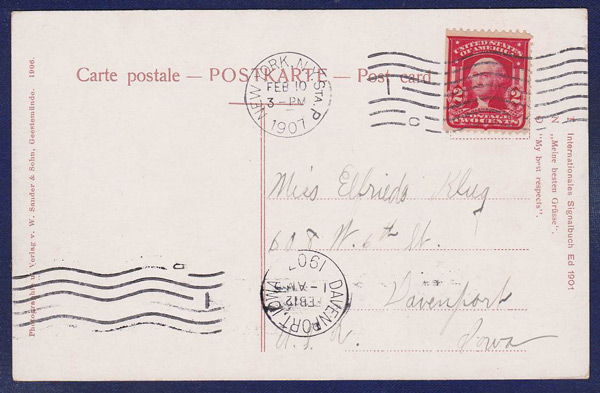 Carte postale — POSTKARTE — Post card
NEW YORK, N.Y. STA. P
FEB 10
3-PM
1907
UNITED STATES
OF AMERICA
2 2
POSTAGE
TWO CENTS
Miss Elfrieda Klug
608 W. 6th St.
Davenport
Iowa
U.S.A.
DAVENPORT, IOWA
FEB 12
1-AM
1907
Photographie u. Verlag v. W. Sander & Sohn, Geestemünde. 1906.
Internationales Signalbuch Ed 1901
N „Meine besten Grüsse".
D „My best respects".